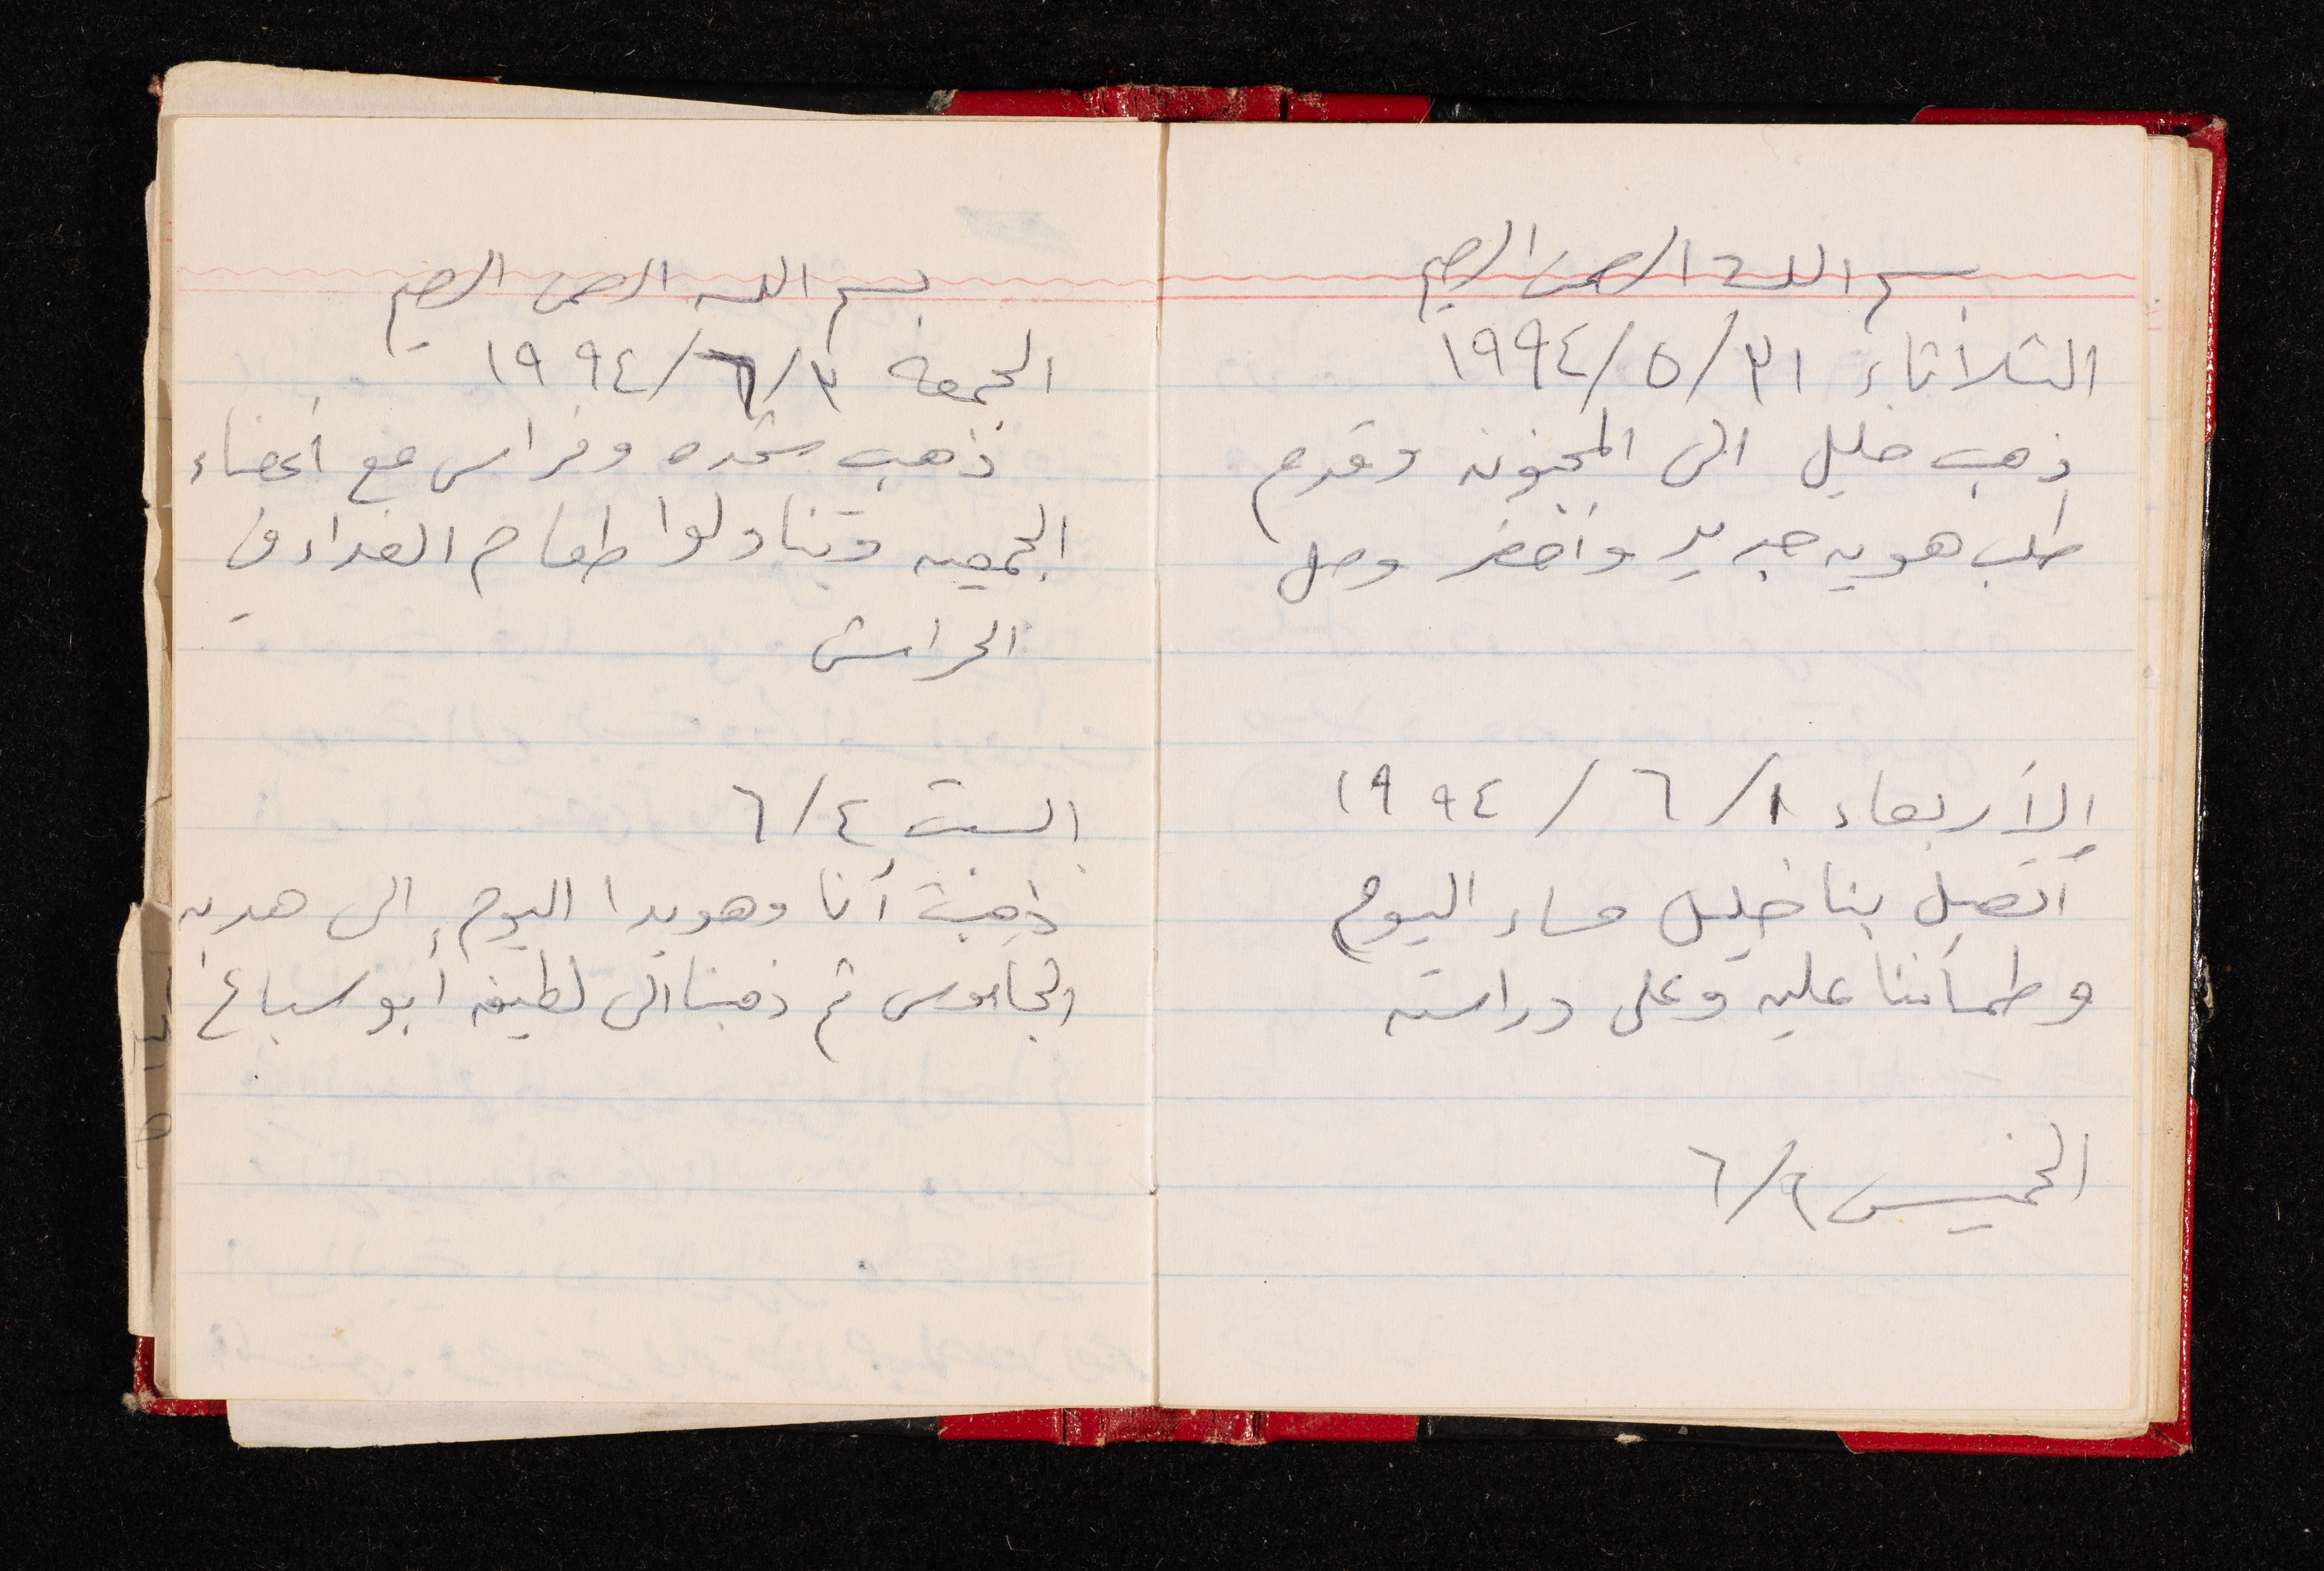 بسم الله الرحمن الرحيم
الثلاثاء ٣١/٥/١٩٩٤
ذهب خليل الى المخيونه وقدم
طلب هويه جديد وأخضر وصل
الأربعاء ١/٦/١٩٩٤
أتصل بنا خليل مساء اليوم
وطمأننا عليه وعلى دراسته
الخميس ٢/٦
بسم الله الرحمن الرحيم
الجمعه ٣/٦/١٩٩٤
ذهب شحده وفراس مع أعضاء
الجمعيه وتناولوا طعام الغداء في
الحراش
السبت ٤/٦
ذهبت أنا وهويدا اليوم الى هديه
الجاموس ثم ذهبنا الى لطيفه أبو سباع